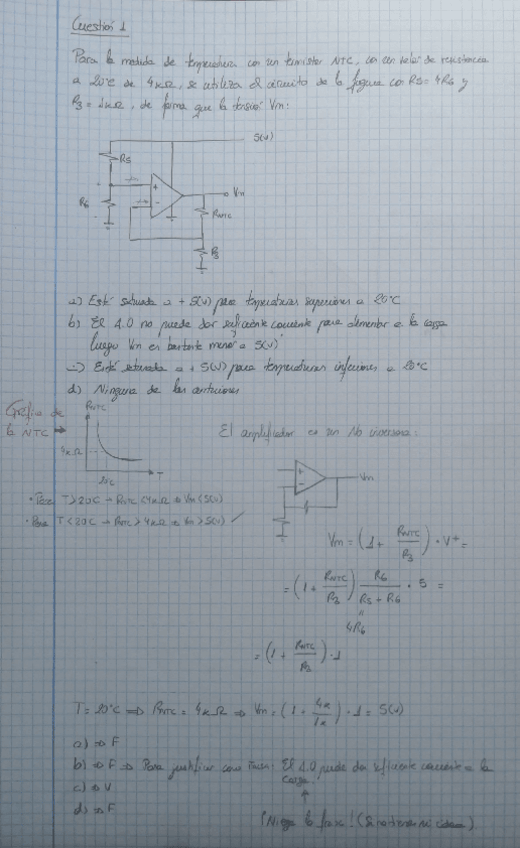 Cuestión 1
Para la medida de temperatura con un termistor NTC, con un valor de resistencia
a 20°C de 4kΩ, se utiliza el circuito de la figura con R5 = 4R6 y
R3 = 1kΩ, de forma que la tensión Vm:
5(V)
R5
+
Vm
R6
-
RNTC
R3
a) Está saturada a +5(V) para temperaturas superiores a 20°C
b) El A.O no puede dar suficiente corriente para alimentar a la carga
luego Vm es bastante menor a 5(V)
c) Está saturada a +5(V) para temperaturas inferiores a 20°C
d) Ninguna de las anteriores
Gráfica de
la NTC
RNTC
4kΩ
20°C
T
El amplificador es un No inversor:
+
-
Vm
· Para T > 20°C → RNTC < 4kΩ ⇒ Vm < 5(V)
· Para T < 20°C → RNTC > 4kΩ ⇒ Vm > 5(V) ✓
Vm = (1 + RNTC/R3) · V+ =
= (1 + RNTC/R3) R6/(R5 + R6) · 5 =
4R6
= (1 + RNTC/R3) · 1
T = 20°C ⇒ RNTC = 4kΩ ⇒ Vm = (1 + 4k/1k) · 1 = 5(V)
a) ⇒ F
b) ⇒ F ⇒ Para justificar como El A.O puede dar suficiente corriente a la
carga
c) ⇒ V
d) ⇒ F
la frase! (Si no tienes ni idea)